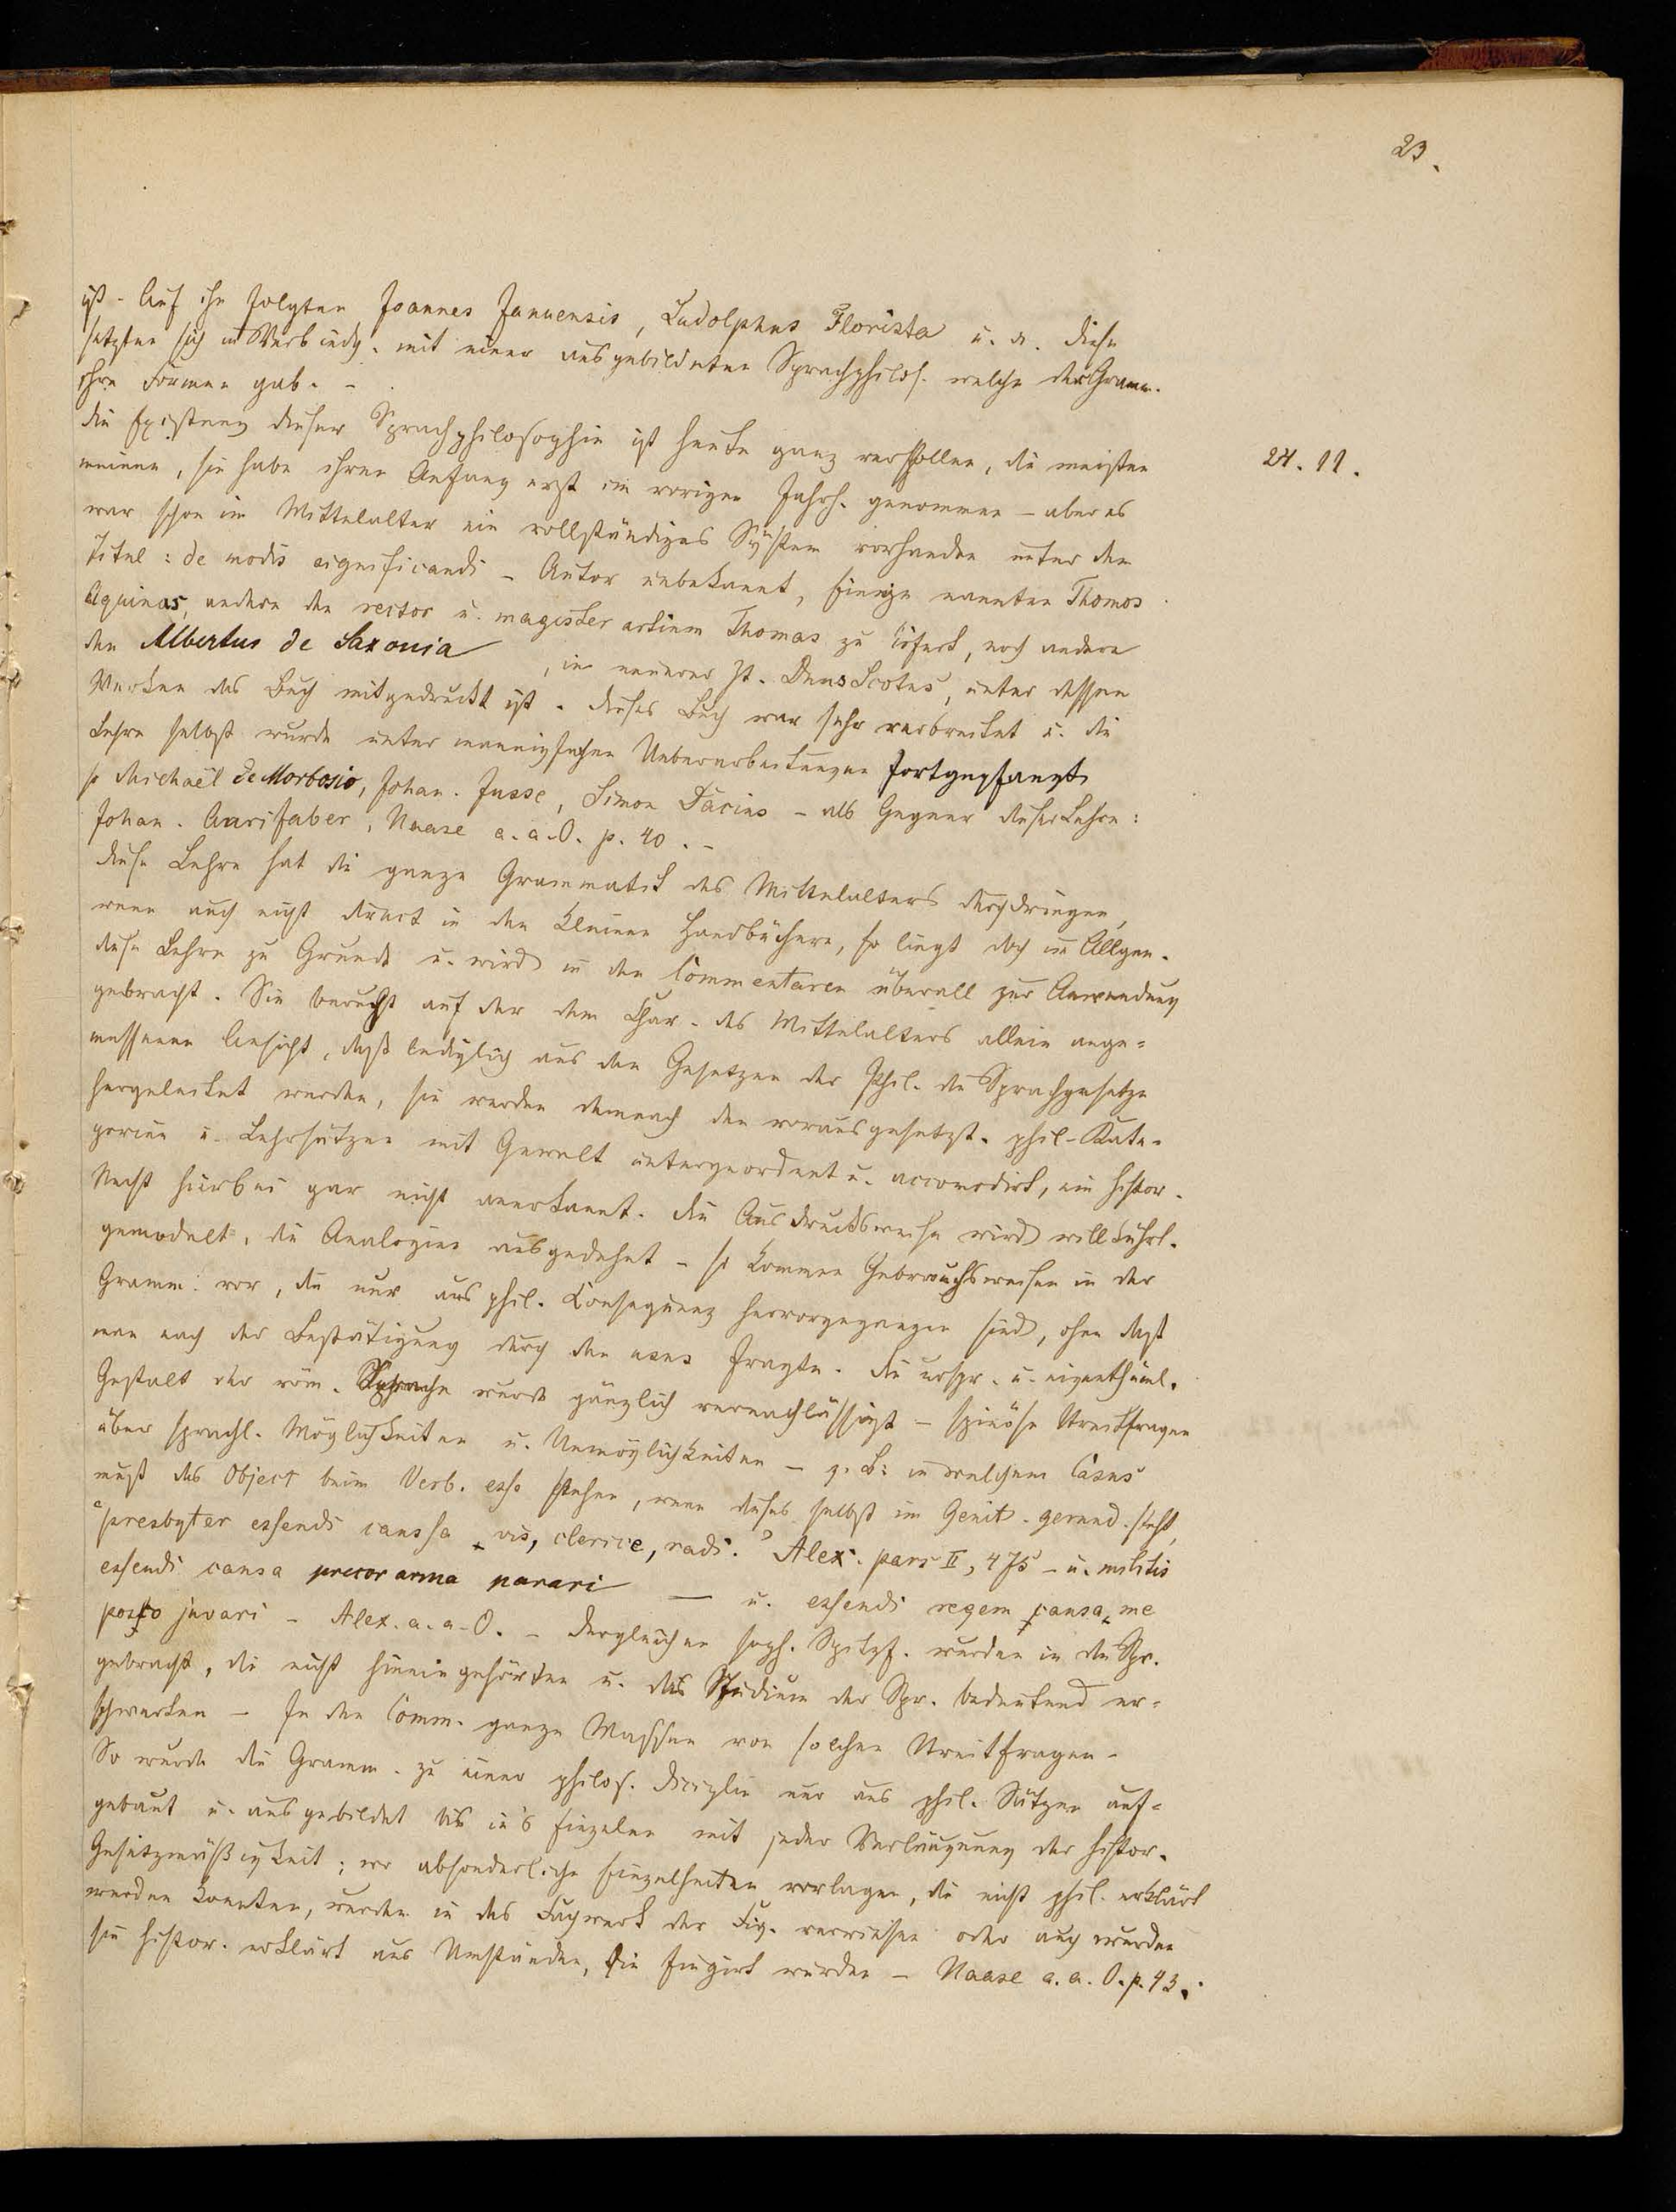 23.
ist. Auf ihn folgten Joannes Januensis, Ludolphus Florista u. a. Diese
setzten sich in Verbindg. mit einer ausgebildeten Sprachphilos. welche der Gramm.
ihre Formen gab. -
Die Existenz dieser Sprachphilosophie ist heute ganz verschollen, die meisten
24. 11.
meinen, sie habe ihren Anfang erst im vorigen Jahrh. genommen - aber es
war schon im Mittelalter ein vollständiges System vorhanden unter dem
Titel: de modis significandi - Autor unbekannt, Einige nannten Thomas
Aquinas, andere den rector u. magister artium Thomas zu Erfurt, noch andere
den Albertus de Saxonia, in neuerer Zt. Duns Scotus, unter dessen
Werken das Buch mitgedruckt ist. Dieses Buch war sehr verbreitet u. die
Lehre selbst wurde unter mannigfachen Ueberarbeitungen fortgepflanzt
so Michaël de Morbosio, Johan. Jusse, Simon Dacius - als Gegner dieser Lehre:
Johan. Aurifaber, Haase a. a. O. p. 40. -
Diese Lehre hat die ganze Grammatik des Mittelalters durchdrungen,
wenn auch nicht direct in den kleinen Handbüchern, so liegt doch im Allgem.
diese Lehre zu Grunde u. wird in den Commentaren überall zur Anwendung
gebracht. Sie beruht auf der dem Char. des Mittelalters allein ange-
messenen Ansicht, dass lediglich aus den Gesetzen der Phil. die Sprachgesetze
hergeleitet werden, sie werden demnach den vorausgesetzt. phil. Kate-
gorien u. Lehrsätzen mit Gewalt untergeordnet u. accomodirt, ein histor.
Recht hierbei gar nicht anerkannt. Die Ausdrucksweise wird willkührl.
gemodelt, die Analogien ausgedehnt - so kommen Gebrauchsweisen in der
Gramm. vor, die nur aus phil. Consequenz hervorgegangen sind, ohne dass
man nach der Bestätigung durch den usus fragte. Die urspr. u. eigenthüml.
Gestalt der röm. Sprache wurde gänzlich vernachlässigt - spinöse Streitfragen
über sprachl. Möglichkeiten u. Unmöglichkeiten - z. B: in welchem Casus
muss das Object beim Verb. esse stehen, wenn dieses selbst im Genit. gerund. steht,
"presbyter essendi caussa vis, clerice, radi." Alex. pars II, 475 - u. militis
essendi causa precor arma parari - u. essendi regem causa, me
posco juvari - Alex. a. a. O. - Dergleichen soph. Spitzf. wurden in die Spr.
gebracht, die nicht hinein gehörten u. das Studium der Spr. bedeutend er-
schwerten - In den Comm. ganze Massen von solchen Streitfragen -
So wurde die Gramm. zu einer philos. Disciplin nur aus phil. Sätzen auf-
gebaut u. ausgebildet bis in's Einzelne mit jeder Verläugnung der histor.
Gesetzmässigkeit; wo absonderliche Einzelheiten vorlagen, die nicht phil. erklärt
werden konnten, wurden in das Fachwerk der Fig. verwiesen oder auch wurden
sie histor. erklärt aus Umständen, die fingirt wurden - Haase a. a. O. p. 43.